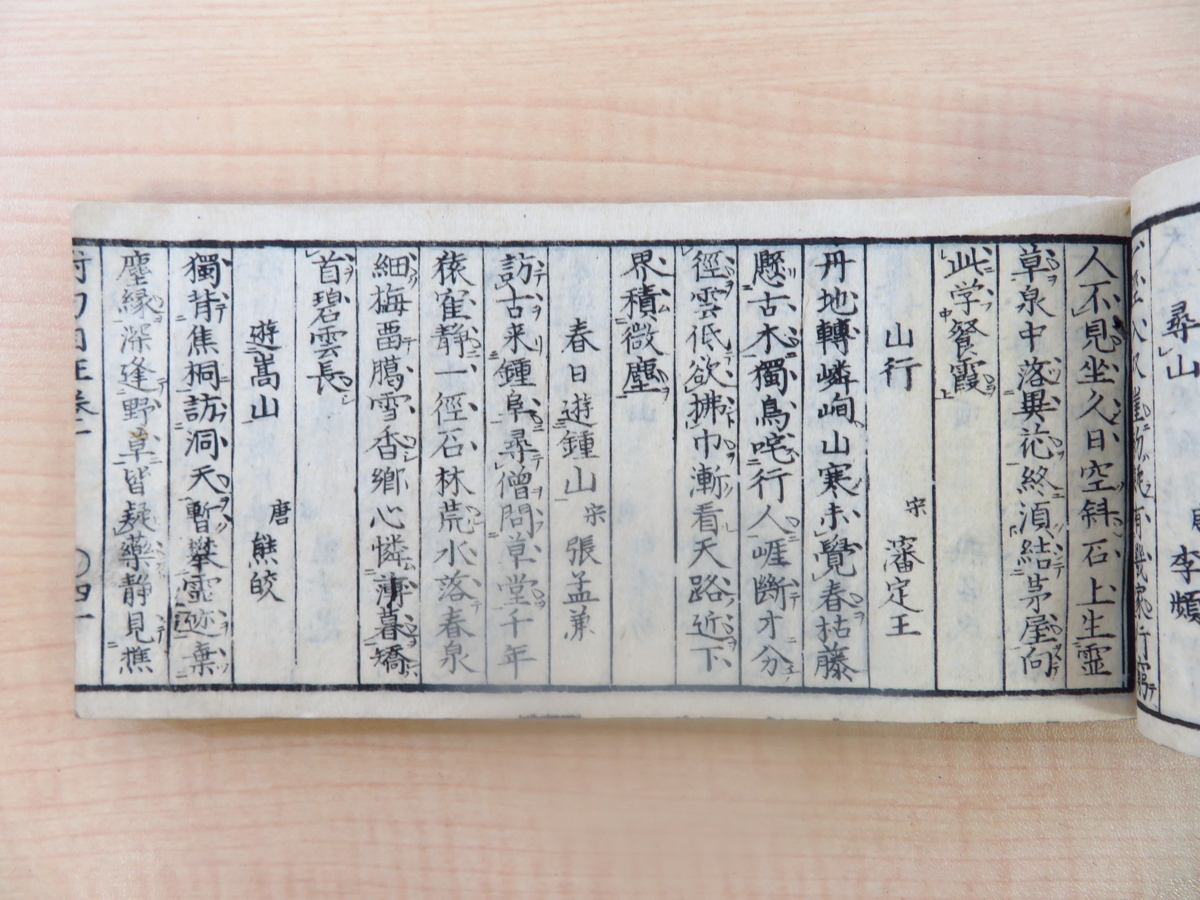 尋山
李頻
人不見坐久日空斜石上生靈
草泉中落異花終須結茅屋向
此学餐霞
山行
宋 瀋定王
丹地轉嶙峋山寒未覺春枯藤
懸古木獨鳥咤行人崕斷才分
徑雲低欲拂巾漸看天路近下
界積微塵
春日遊鍾山 宋 張孟兼
訪古来鍾阜尋僧問草堂千年
猿寉静一徑石林荒水落春泉
細梅畱臈雪香鄉心憐薄暮矯
首碧雲長
遊嵩山
唐 熊皎
獨背焦桐訪洞天暫攀靈迹棄
塵緣深逢野草皆疑藥静見樵